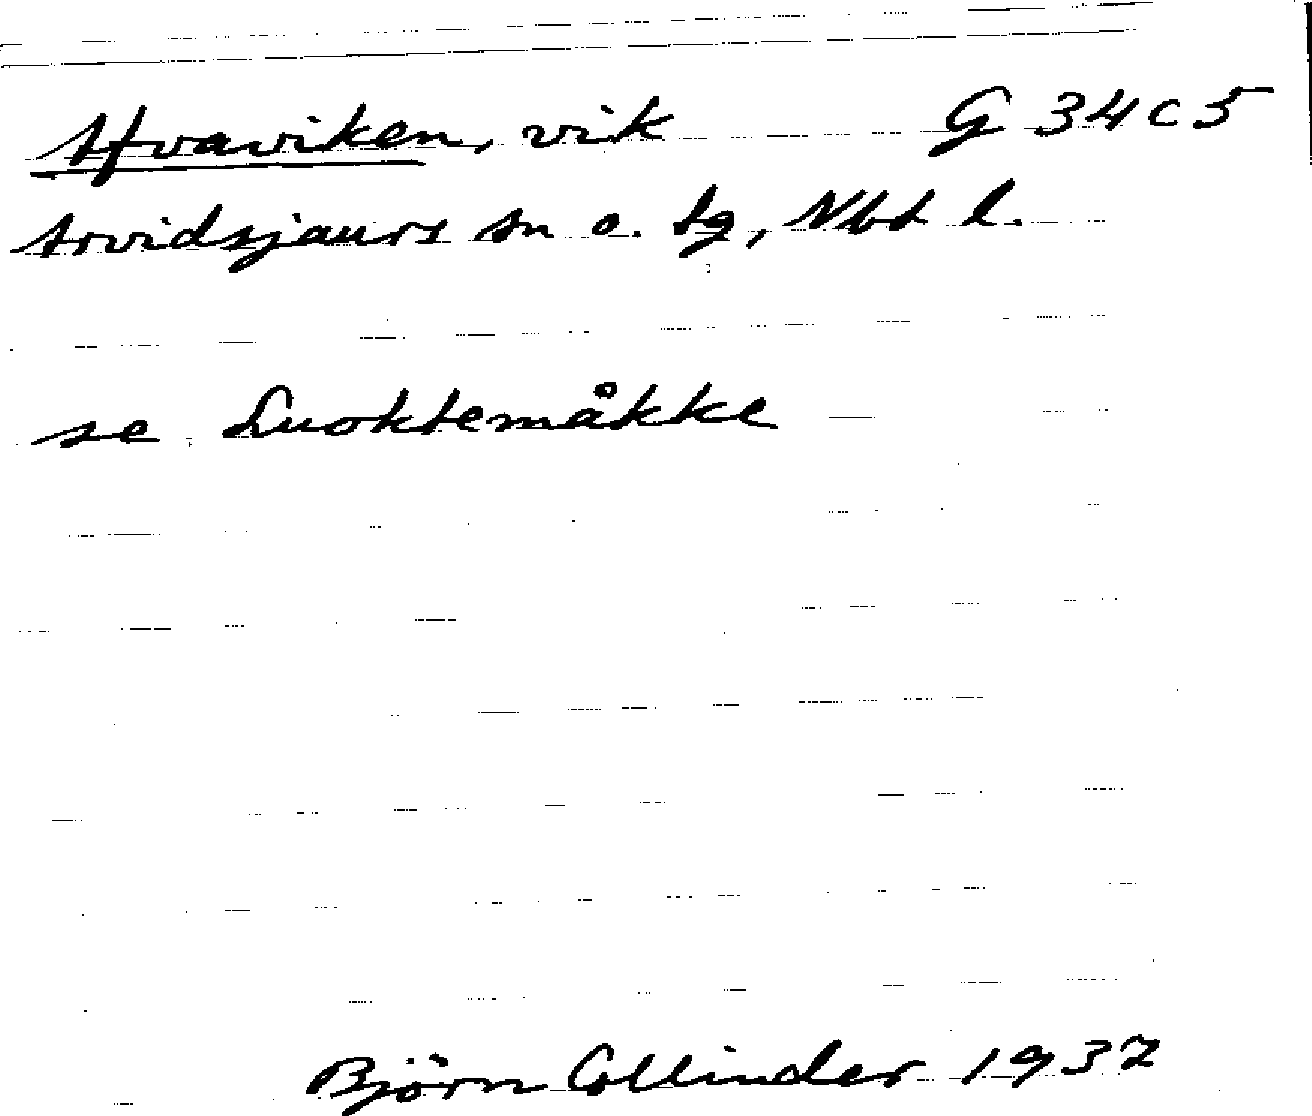 Afvaviken, vik G 34 c 5
Arvidsjaurs sn o. tg, Nbt l.
se Luoktemåkke
Björn Collinder 1937